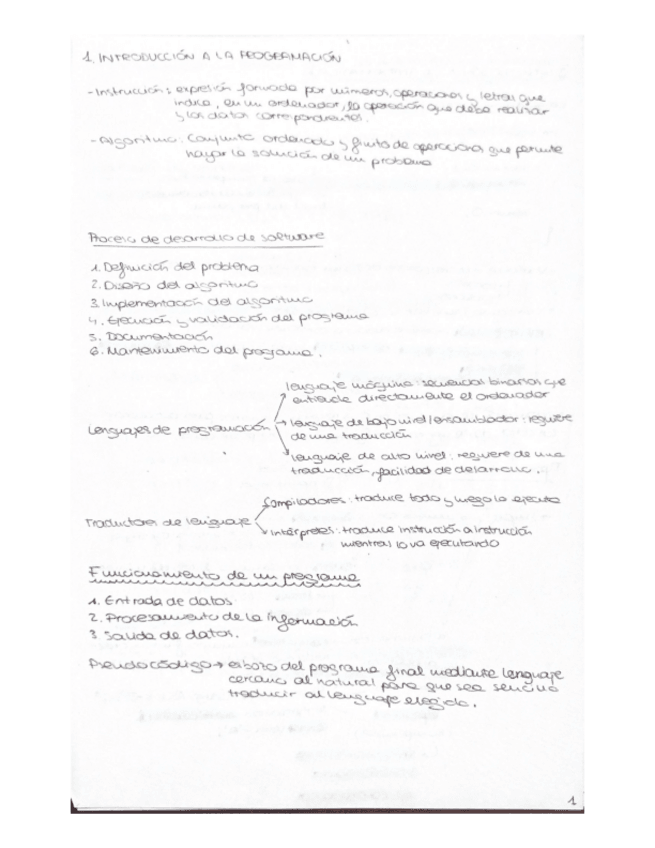 1. INTRODUCCIÓN A LA PROGRAMACIÓN
- Instrucción: expresión formada por números, operaciones y letras que
indica, en un ordenador, la operación que debe realizar
y los datos correspondientes.
- Algoritmo. Conjunto ordenado y finito de operaciones que permite
hayar la solución de un problema
Proceso de desarrollo de software
1. Definición del problema
2. Diseño del algoritmo
3. Implementación del algoritmo
4. Ejecución y validación del programa
5. Documentación
6. Mantenimiento del programa.
lenguaje máquina: secuencias binarias que
entiende directamente el ordenador
Lenguajes de programación → lenguaje de bajo nivel/ensamblador: requiere
de una traducción
lenguaje de alto nivel: requiere de una
traducción, facilidad de desarrollo.
Compiladores: traduce todo y luego lo ejecuta
Traductores de lenguaje
intérpretes: traduce instrucción a instrucción
mientras lo va ejecutando
Funcionamiento de un programa
1. Entrada de datos
2. Procesamiento de la información
3. Salida de datos.
Pseudocódigo → esbozo del programa final mediante lenguaje
cercano al natural para que sea sencillo
traducir al lenguaje elegido.
1